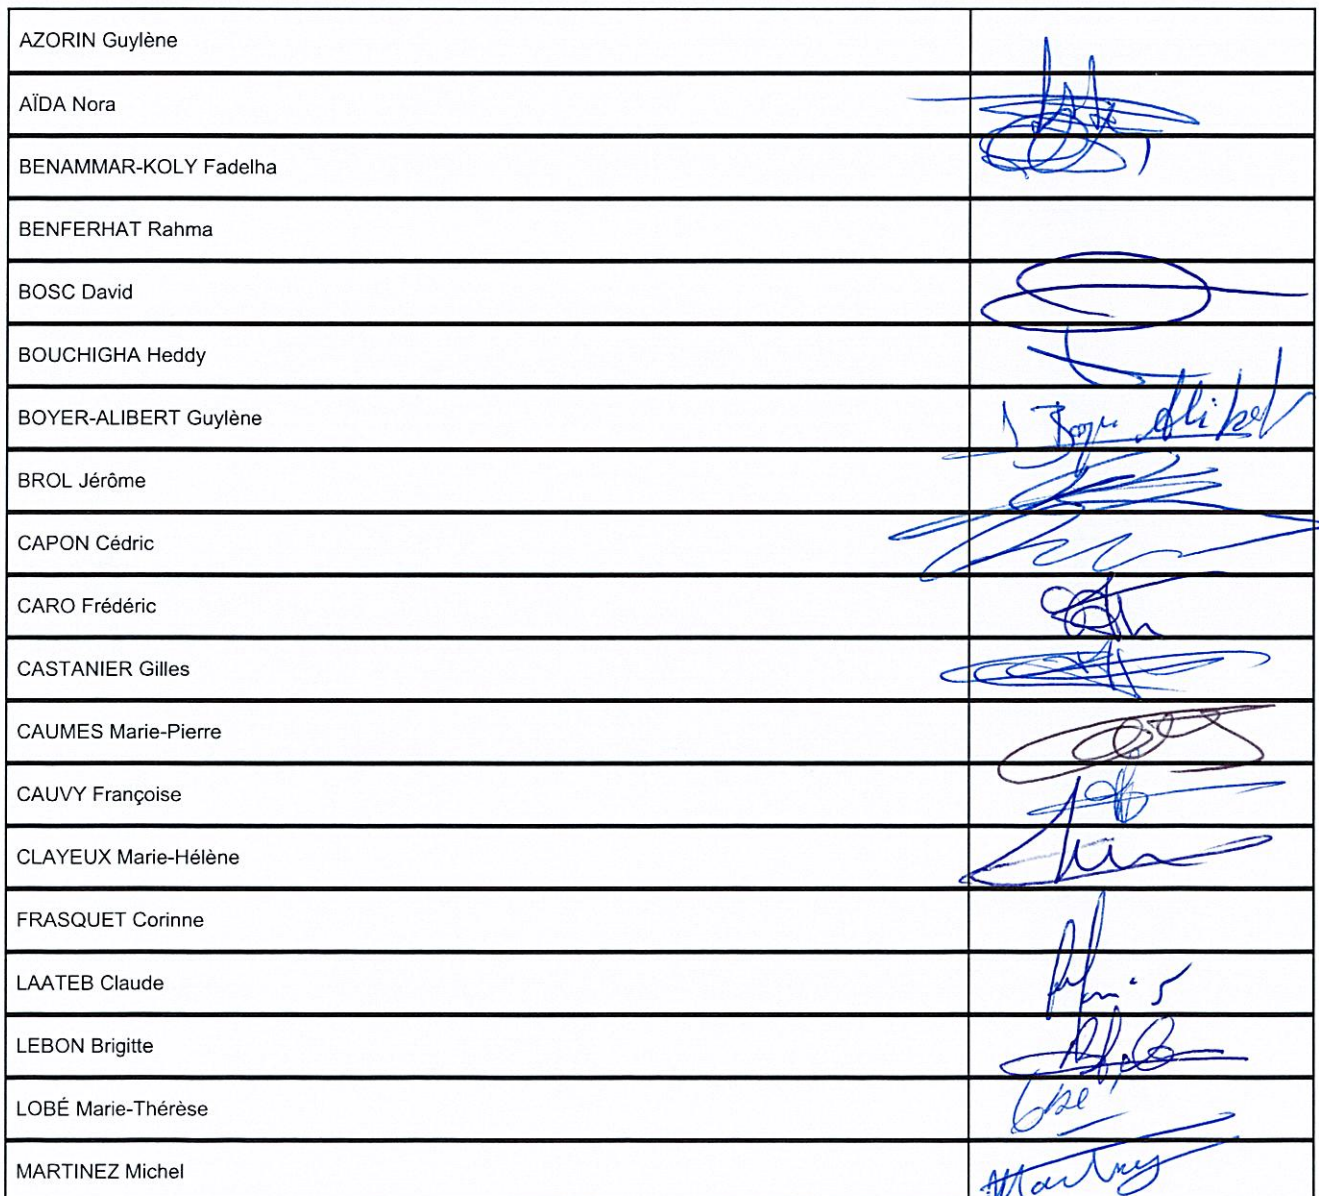 AZORIN Guylène
AÏDA Nora
BENAMMAR-KOLY Fadelha
BENFERHAT Rahma
BOSC David
BOUCHIGHA Heddy
BOYER-ALIBERT Guylène
BROL Jérôme
CAPON Cédric
CARO Frédéric
CASTANIER Gilles
CAUMES Marie-Pierre
CAUVY Françoise
CLAYEUX Marie-Hélène
FRASQUET Corinne
LAATEB Claude
LEBON Brigitte
LOBÉ Marie-Thérèse
MARTINEZ Michel